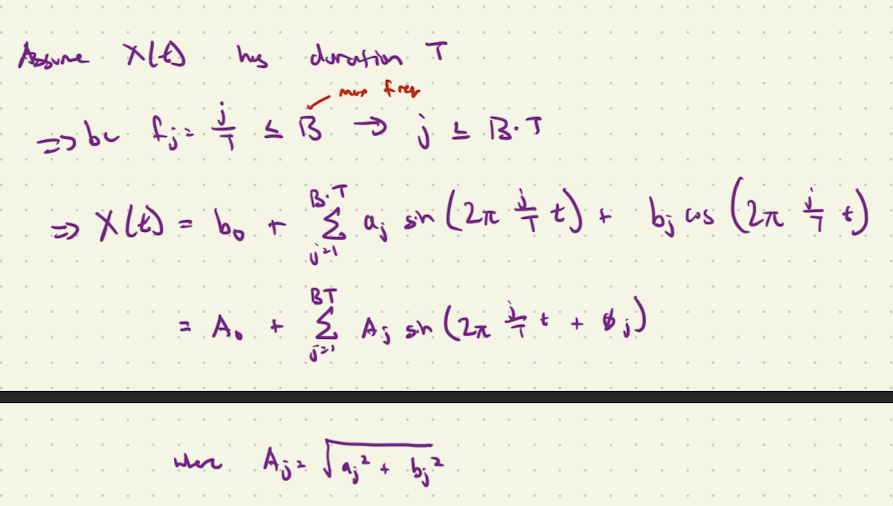 Assume X(t) has duration T
max freq
⇒ bc f_j = j/T ≤ B → j ≤ B·T
⇒ X(t) = b_0 + Σ_{j=1}^{B·T} a_j sin(2π j/T t) + b_j cos(2π j/T t)
= A_0 + Σ_{j=1}^{BT} A_j sin(2π j/T t + ϕ_j)
where A_j = √(a_j² + b_j²)